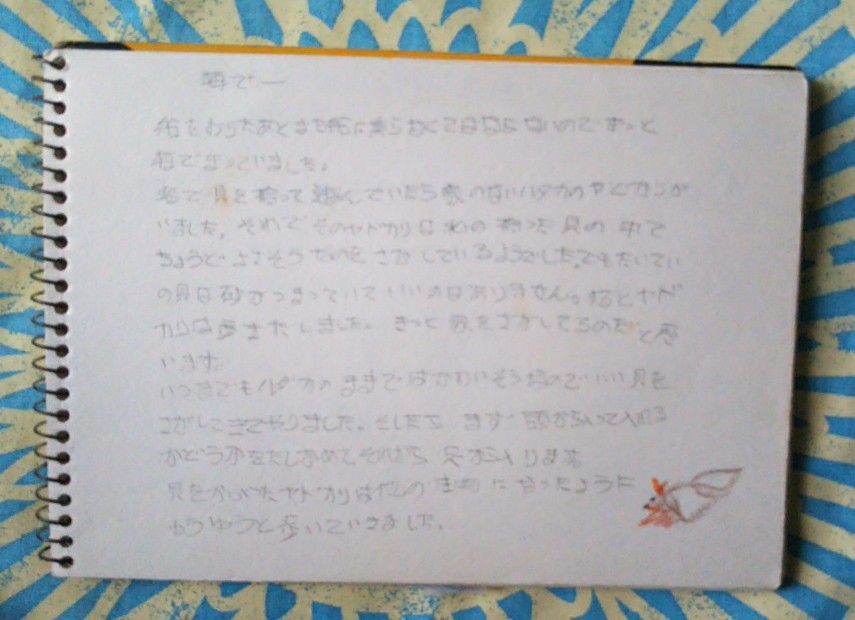 海で一
船をおりたあとまた船に乗らなくてはならないのでずっと
海でまっていました。
海で貝を拾って遊んでいたら家のないハダカのヤドカリが
いました。それでそのヤドカリは私の拾った貝の中で
ちょうどよさそうなのをさがしているようでした。でもたいてい
の貝は砂がつまっていていいのはありません。するとヤド
カリは歩きだしました。きっと家をさがしてるのだと思
います。
いつまでもハダカのままではかわいそうなのでいい貝を
さがしてきてやりました。そしたら まず 頭からいって入れる
かどうかをたしかめて、それから 足から入ります
貝をかぶったヤドカリは他の生物になったように
ゆうゆうと歩いていきました。